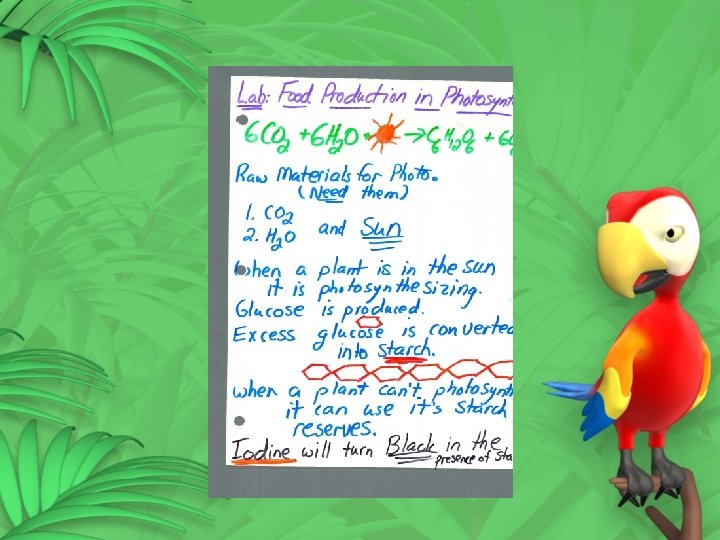 Lab: Food Production in Photosynt
6CO2 + 6H2O → C6H12O6 + 6
Raw Materials for Photo.
(Need them)
1. CO2
2. H2O and Sun
When a plant is in the sun
it is photosynthesizing.
Glucose is produced.
Excess glucose is converted
into starch.
when a plant can't photosynth
it can use it's starch
reserves.
Iodine will turn Black in the
presence of sta